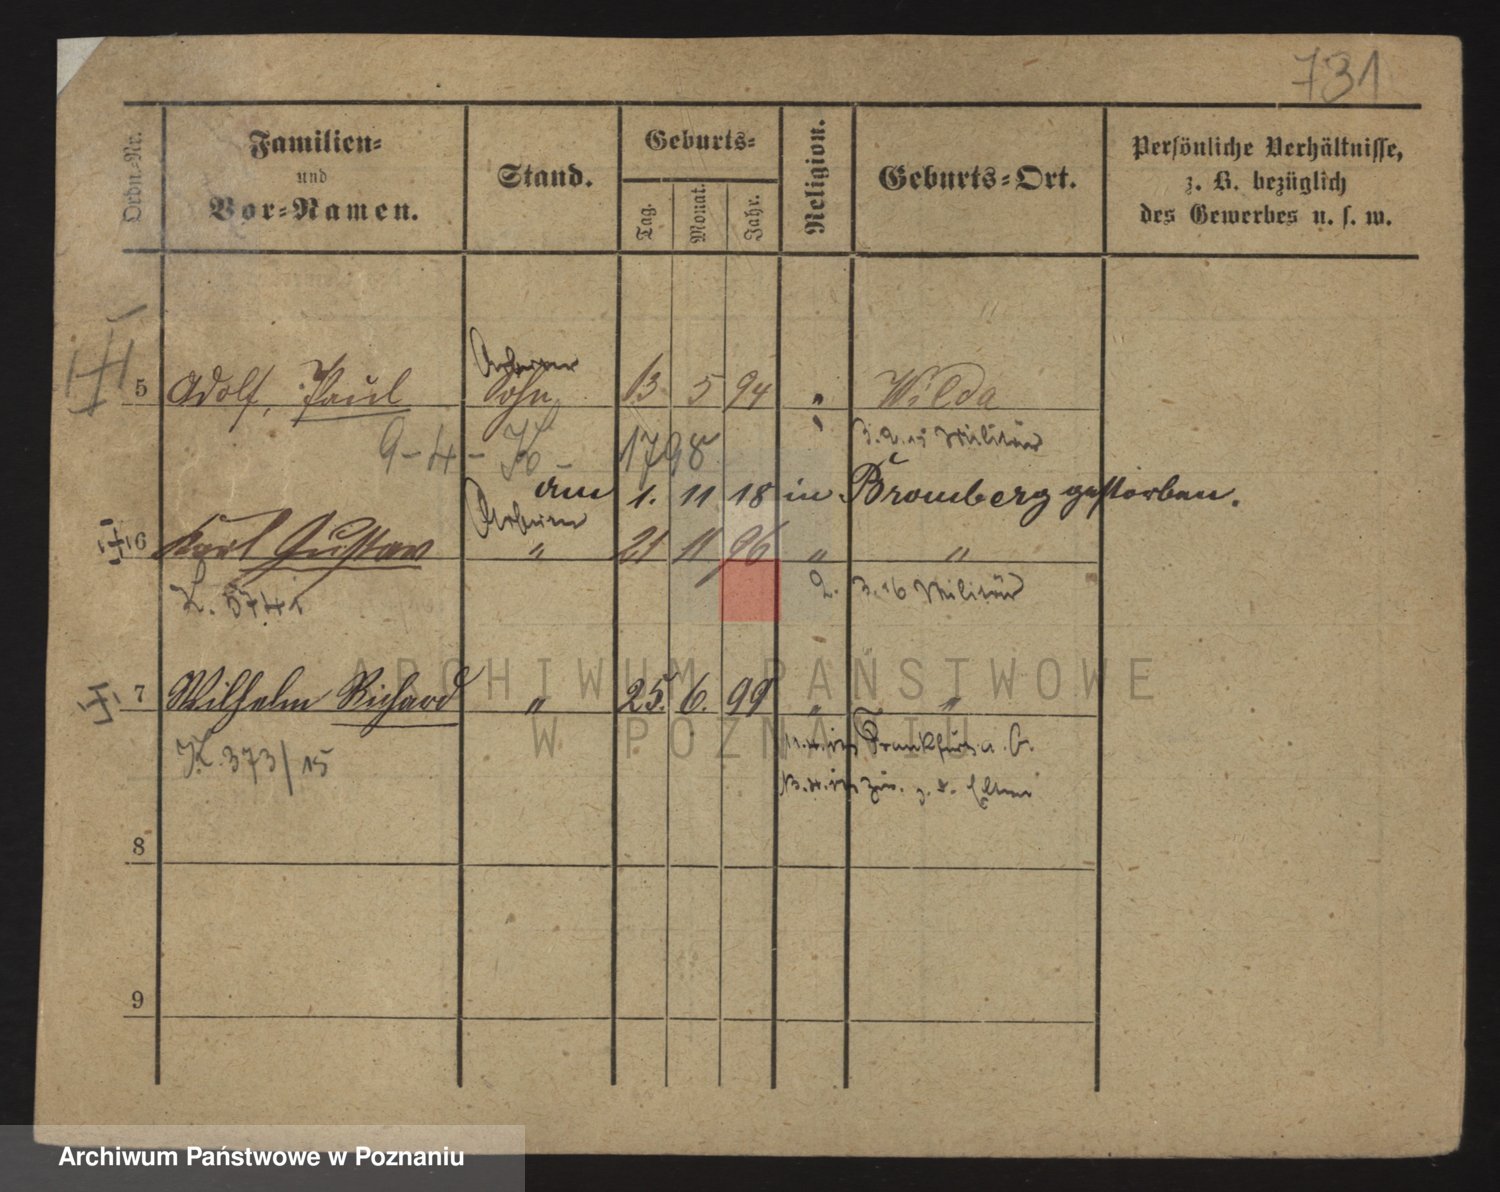 731
Ordn.-Nr.
Familien-
und
Vor-Namen.
Stand.
Geburts-
Tag. Monat. Jahr.
Religion.
Geburts-Ort.
Persönliche Verhältnisse,
z. B. bezüglich
des Gewerbes u. s. w.
Arbeiter
5 Adolf, Paul Sohn 13 5 94 " Wilda
9-4- K- 1798 Militär
am 1. 11 18 in Bromberg gestorben.
Arbeiter
6 Karl Gustav " 21 11 96 " "
K. 5741 2. 3. 16 Militär
7 Wilhelm Richard " 25. 6. 99 " "
K. 373/15 Frankfurt a. O.
zur. z. d. Eltern
8
9
ARCHIWUM PAŃSTWOWE
W POZNANIU
Archiwum Państwowe w Poznaniu